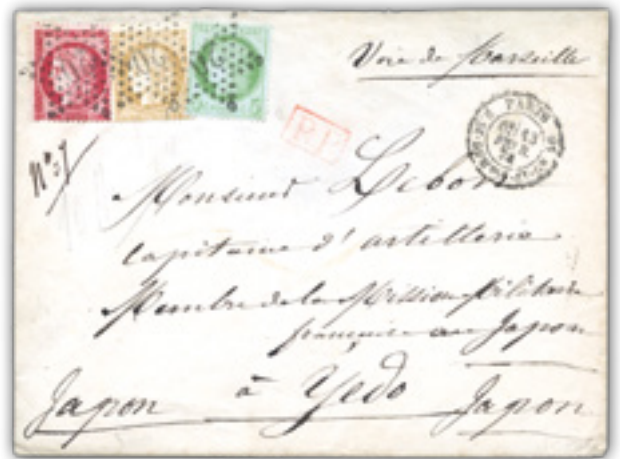 Voie de Marseille
P.P.
PARIS
N° 57
Monsieur Lebon
capitaine d'artillerie
Membre de la Mission Militaire
française au Japon
à Yedo
Japon Japon